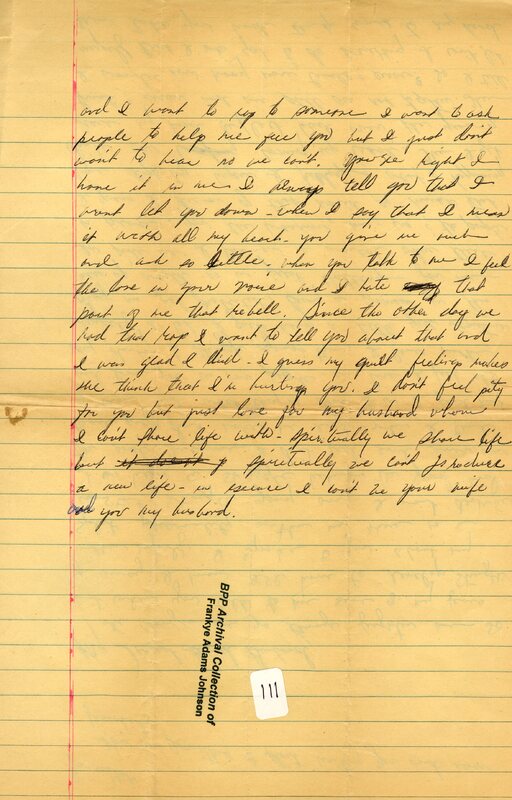 and I want to rap to someone I want to ask
people to help me free you but I just don't
want to hear no we can't. You're right I
have it in me. I always tell you that I
won't let you down - when I say that I mean
it with all my heart - you give me much
and ask so little. when you talk to me I feel
the love in your voice and I hate that
part of me that rebell. Since the other day we
had that rap I want to tell you about that and
I was glad I did - I guess my guilt feelings makes
me think that I'm hurting you. I don't feel pity
for you but just love for my husband whom
I can't share life with - spiritually we share life
but spiritually we can't produce
a new life - in I can't be your wife
and you my husband.
BPP Archival Collection of
Frankye Adams Johnson
111